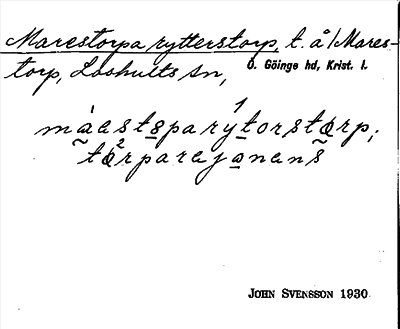 Marestorpa rytterstorp, t. å /Mares-
torp, Loshults sn, Ö. Göinge hd, Krist. l.
máastsparýtorstærp;
tærparejanens
JOHN SVENSSON 1930